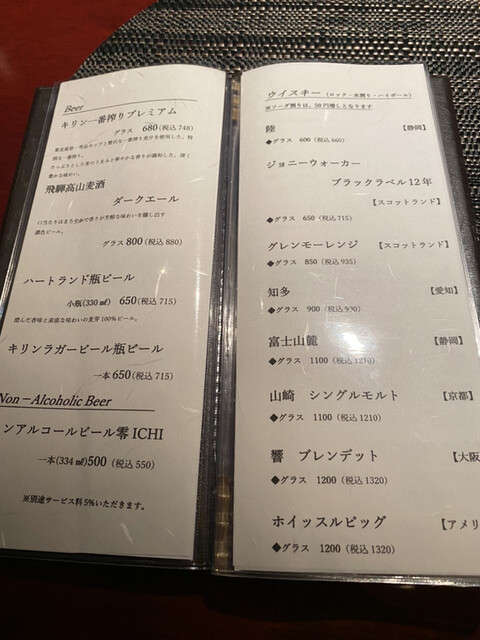 Beer
キリン一番搾りプレミアム
グラス 680(税込748)
たっぷりとした麦のうまみと華やかな香りが調和した、深く
豊かな味わい。
飛騨高山麦酒
ダークエール
口当たりはまろやかで香りが芳醇な味わいを醸し出す
濃色ビール。
グラス 800(税込 880)
ハートランド瓶ビール
小瓶(330㎖) 650(税込715)
澄んだ香味と素直な味わいの麦芽100%ビール。
キリンラガービール瓶ビール
一本 650(税込 715)
Non－Alcoholic Beer
ンアルコールビール零 ICHI
一本(334㎖)500 (税込 550)
※別途サービス料5%いただきます。
ウイスキー (ロック・水割り・ハイボール)
※ソーダ割りは、50円増しとなります
陸 【静岡】
◆グラス 600 (税込 660)
ジョニーウォーカー
ブラックラベル 12 年
【スコットランド】
◆グラス 650 (税込 715)
グレンモーレンジ 【スコットランド】
◆グラス 850 (税込 935)
知多 【愛知】
◆グラス 900 (税込 990)
富士山麓 【静岡】
◆グラス 1100 (税込 1210)
山崎 シングルモルト 【京都】
◆グラス 1100 (税込 1210)
響 ブレンデット 【大阪
◆グラス 1200 (税込 1320)
ホイッスルピッグ 【アメリ
◆グラス 1200 (税込 1320)